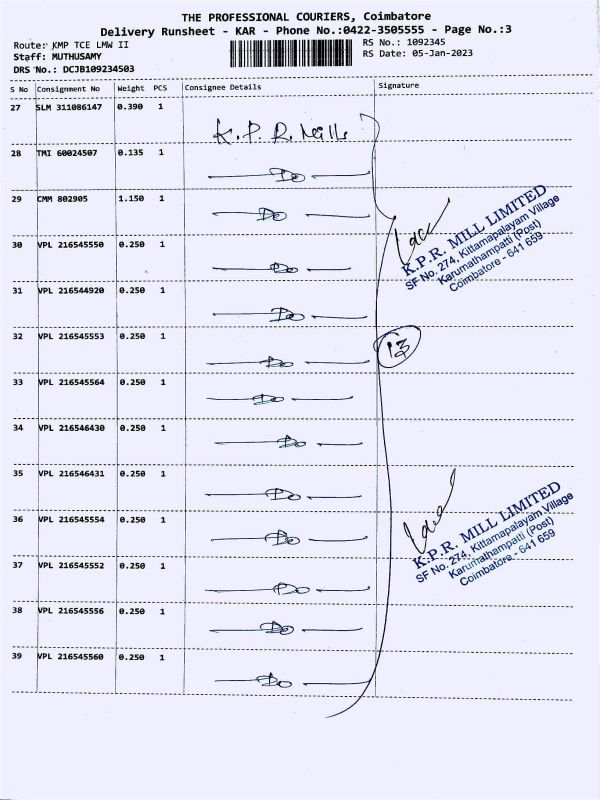 THE PROFESSIONAL COURIERS, Coimbatore
Delivery Runsheet - KAR - Phone No.:0422-3505555 - Page No.:3
Route: KMP TCE LMW II
RS No.: 1092345
Staff: MUTHUSAMY
RS Date: 05-Jan-2023
DRS No.: DCJB109234503
S No Consignment No Weight PCS Consignee Details Signature
27 SLM 311086147 0.390 1 K. P. R. Mills
28 TMI 60024507 0.135 1 Do
29 CMM 802905 1.150 1 Do
K.P.R. MILL LIMITED
SF No. 274, Kittampalayam Village
Karumathampatti (Post)
Coimbatore - 641 659
30 VPL 216545550 0.250 1 Do
31 VPL 216544920 0.250 1 Do
32 VPL 216545553 0.250 1 Do
13
33 VPL 216545564 0.250 1 Do
34 VPL 216546430 0.250 1 Do
35 VPL 216546431 0.250 1 Do
36 VPL 216545554 0.250 1 Do
K.P.R. MILL LIMITED
SF No. 274, Kittampalayam Village
Karumathampatti (Post)
Coimbatore - 641 659
37 VPL 216545552 0.250 1 Do
38 VPL 216545556 0.250 1 Do
39 VPL 216545560 0.250 1 Do